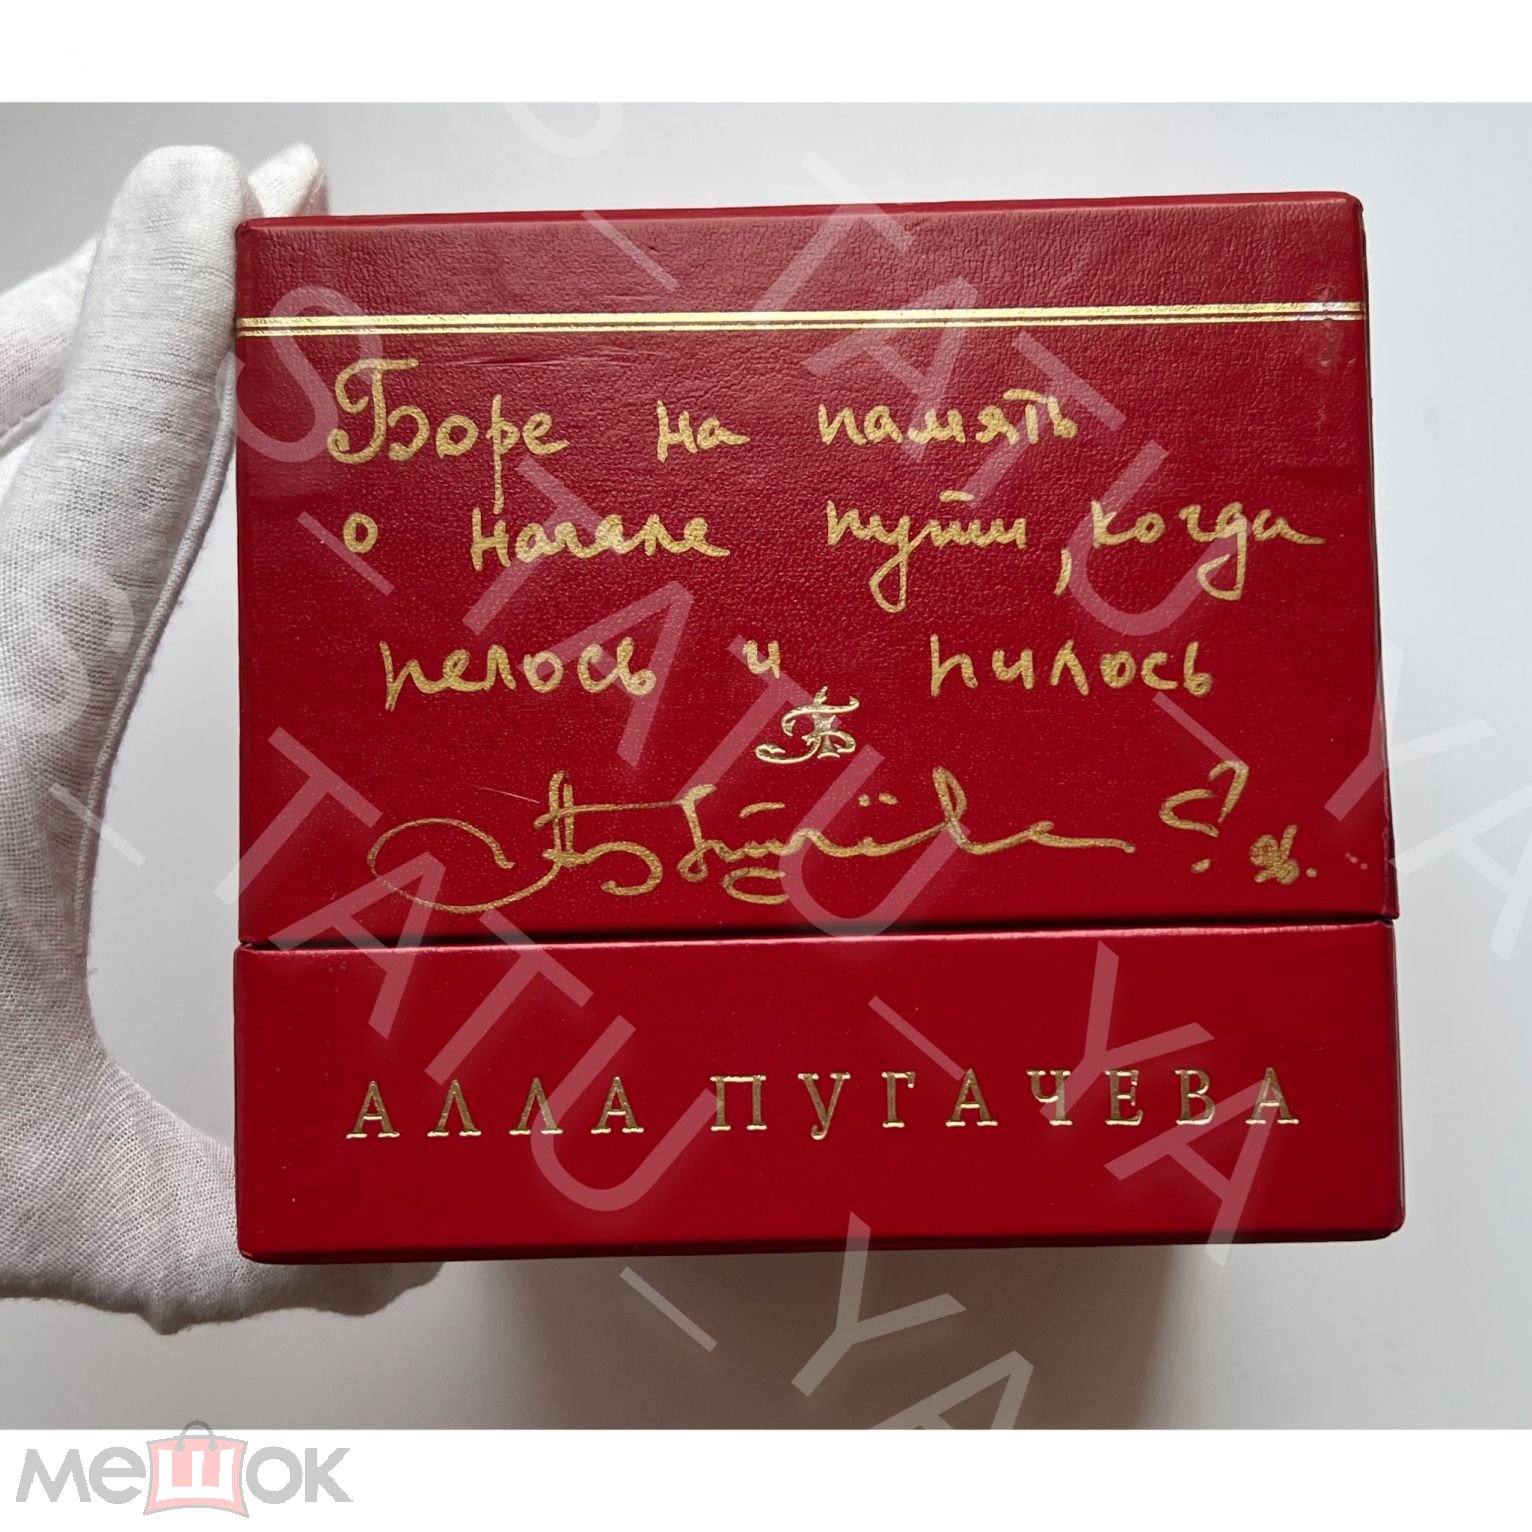 Боре на память
о начале пути, когда
пелось и пилось
АБ
?
96.
АЛЛА ПУГАЧЕВА
S_TATU_YA
S_TATU_YA
S_TATU_YA
мешок